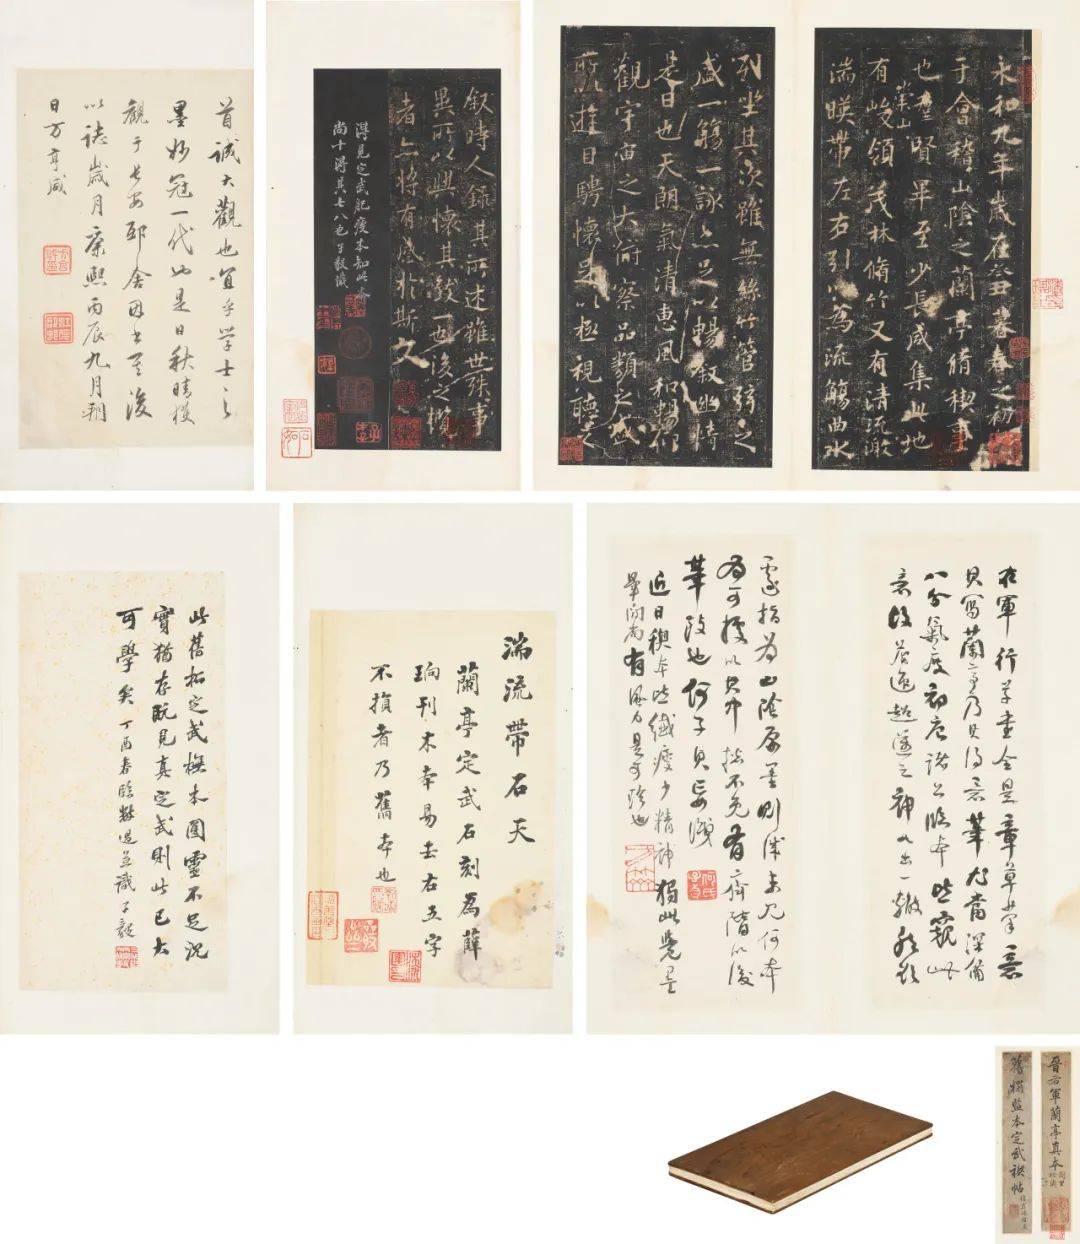 永和九年歲在癸丑暮春之初
于會稽山陰之蘭亭脩稧事
也羣賢畢至少長咸集此地
有崇山峻領茂林脩竹又有清流激
湍暎帶左右引以為流觴曲水
列坐其次雖無絲竹管弦之
盛一觴一詠亦足以暢敘幽情
是日也天朗氣清惠風和暢仰
觀宇宙之大俯察品類之盛
所以遊目騁懷足以極視聽之
敘時人錄其所述雖世殊事
異所以興懷其致一也後之攬
者亦將有感於斯文
得見定武肥瘦本知此
尚十得其七八也子毅識
首誠大觀也 乎學士之
墨妙冠一代也是日秋晴獲
觀于長安邸舍因書其後
以誌歲月康熙丙辰九月朔
日方亨咸
右軍行草書全是章草筆意
其寫蘭亭乃其得意筆尤當深備
八分氣度初唐諸公臨本皆窺此
意後 超邁之神如出一轍
遂指為山陰原墨則誠未見何本
有可援以 不免有齊隋以後
筆段也何子貞妄識
近日稧本皆纖瘦少精神獨此覺墨
華間尚有風力是可珍也
湍流帶右天
蘭亭定武石刻為薛
珦刊木本易去右五字
不損者乃舊本也
此舊拓定武橅本圓靈不足沉
實猶存既見真定武則此已大
可學矣丁酉春臨數過並識子毅
晉右軍蘭亭真本
舊榻監本定武稧帖